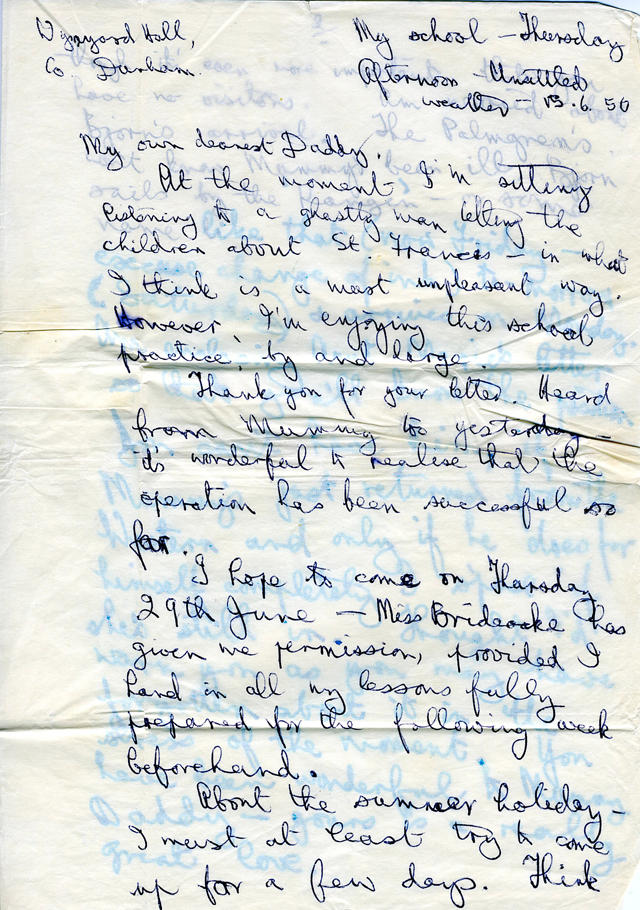 Wynyard Hall,
Co Durham.
My school - Thursday
Afternoon - Unsettled
weather - 15.6.50
My own dearest Daddy,
At the moment I'm sitting
listening to a ghastly man telling the
children about St. Francis - in what
I think is a most unpleasant way.
However, I'm enjoying this school
practice, by and large.
Thank you for your letter. Heard
from Mummy too yesterday -
it's wonderful to realise that the
operation has been successful so
far.
I hope to come on Thursday
29th June - Miss Brideoake has
given me permission, provided I
hand in all my lessons fully
prepared for the following week
beforehand.
About the summer holiday -
I must at least try to come
up for a few days. Think